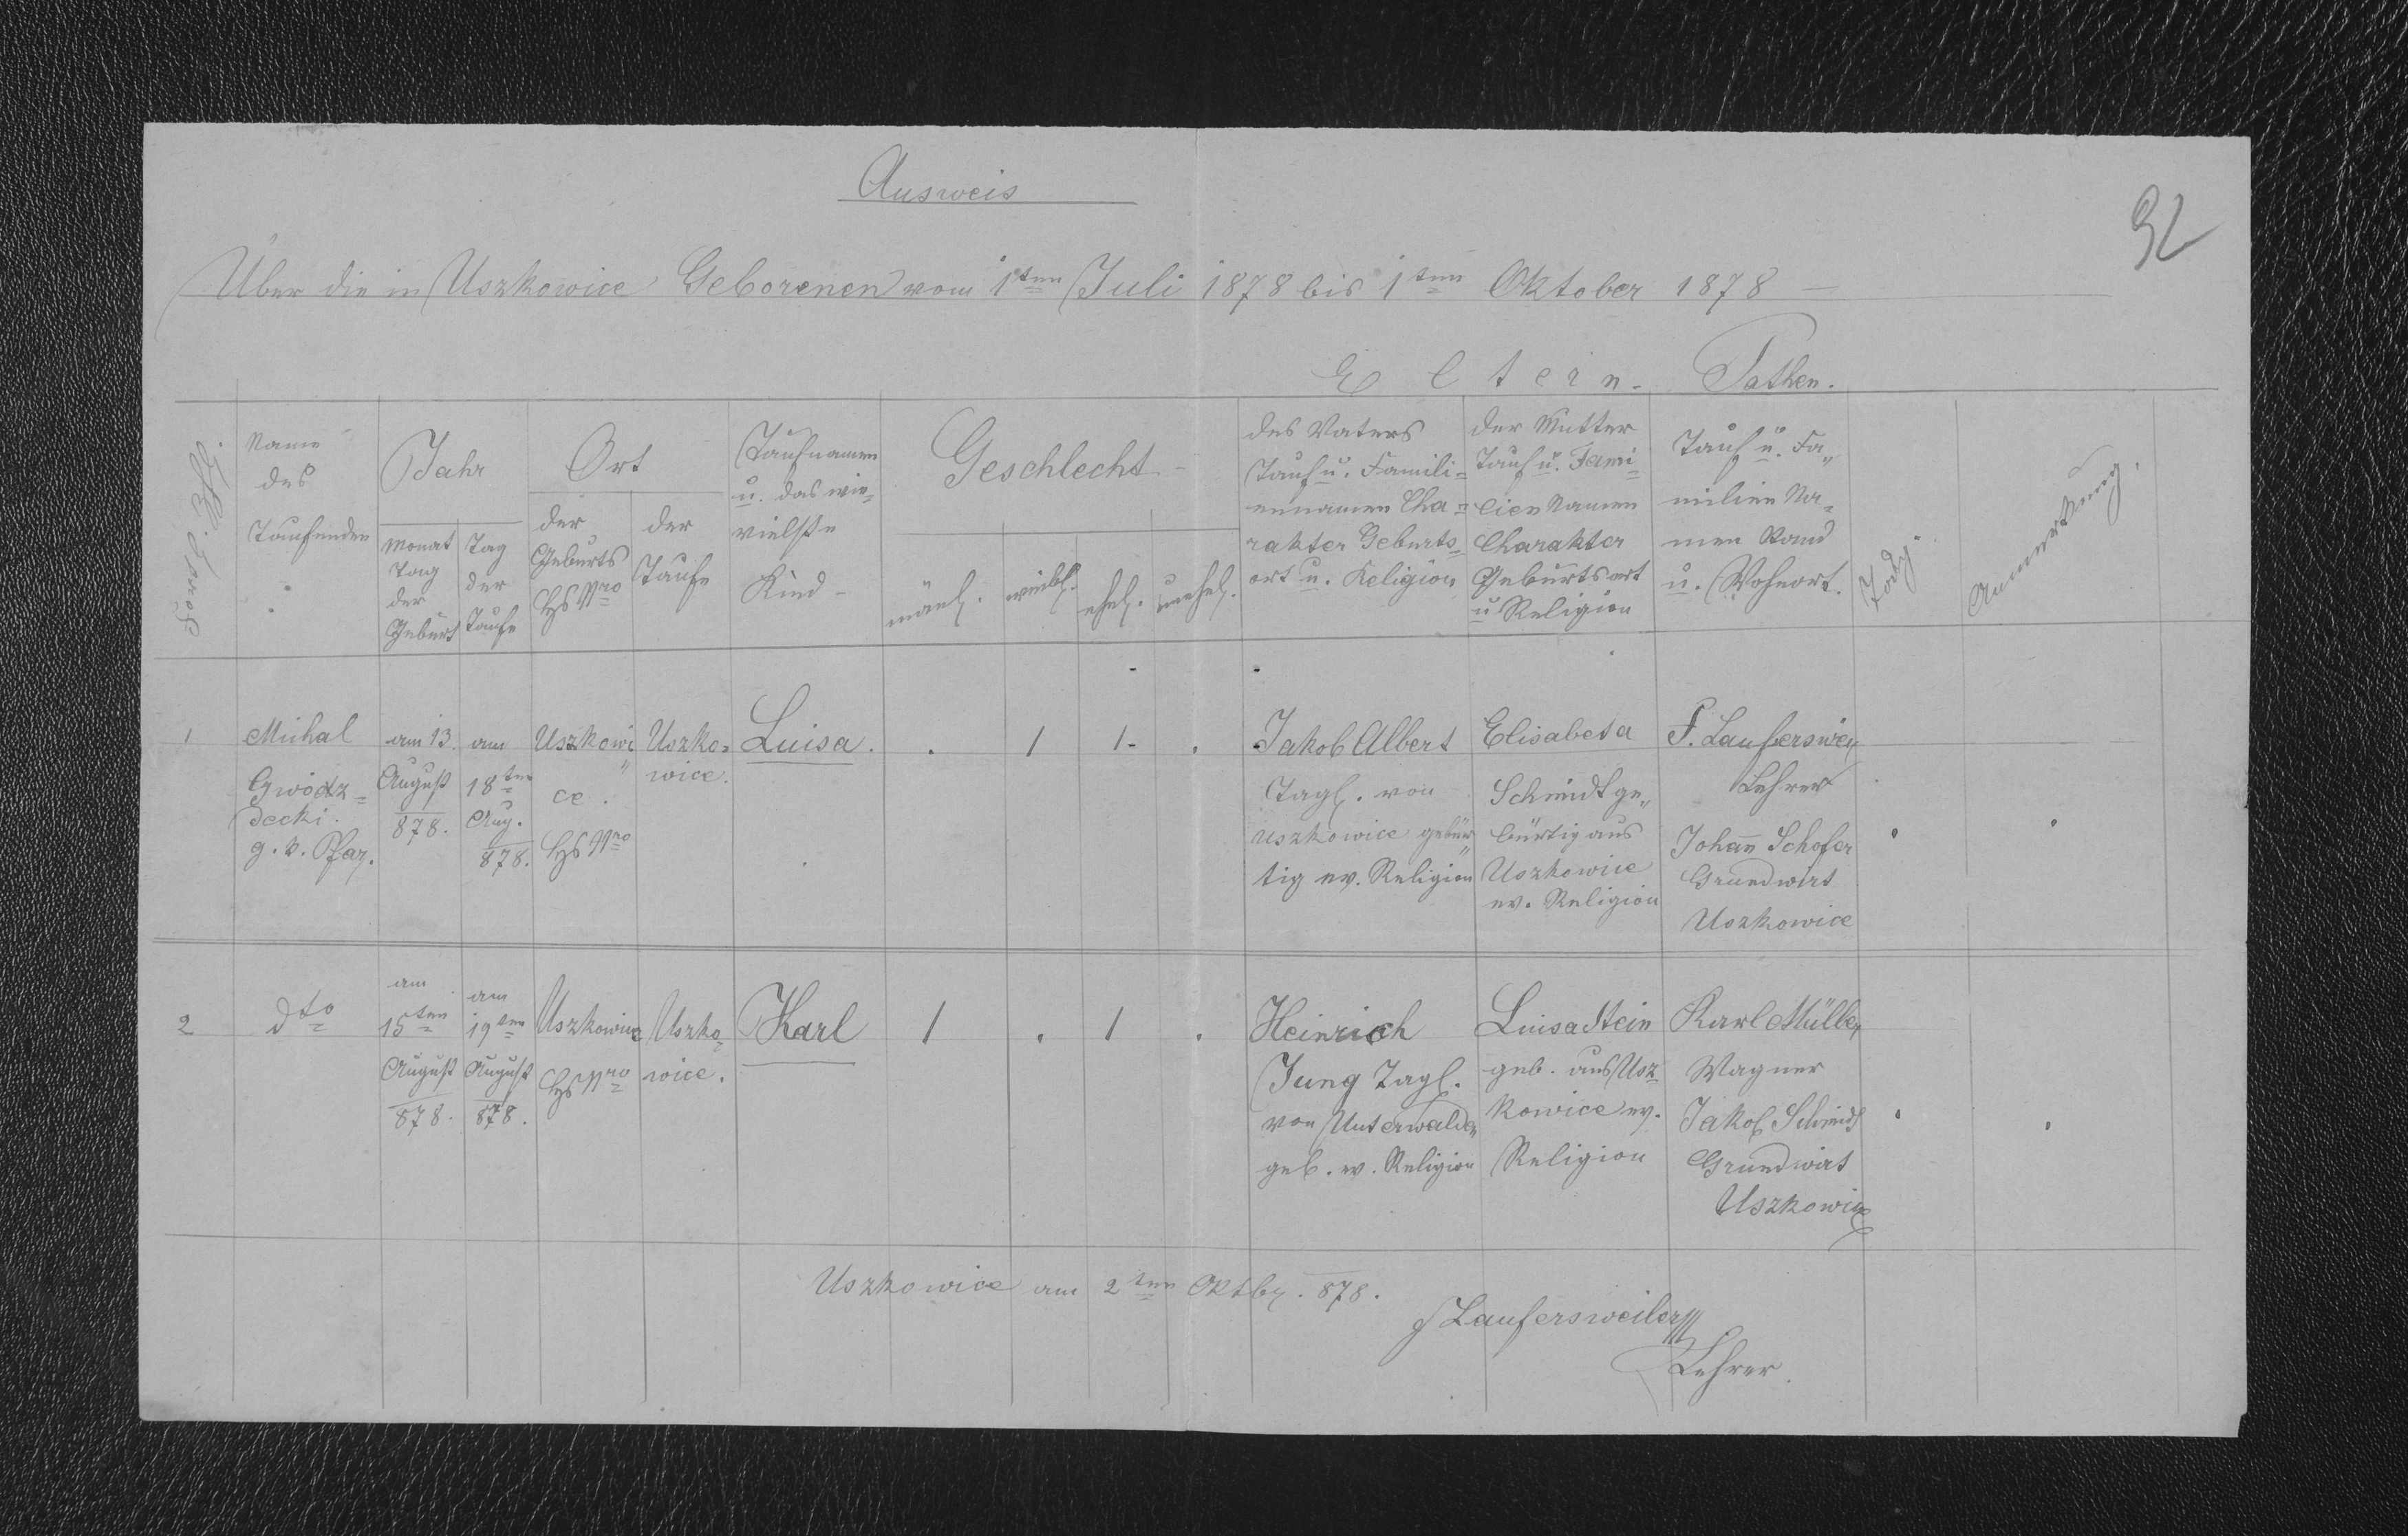 Ausweis
92
Über die in Uszkowice Geborenen vom 1ten Juli 1878 bis 1ten Oktober 1878 —
Eltern. Pathen.
Name des Taufenden
Jahr
Monat Tag der Geburt
Tag der Taufe
Ort
der Geburts Hs Nro
der Taufe
Taufnamen
u. das wie=
vielste
Kind –
Geschlecht
mänl. weibl. ehel. unehel.
des Vaters
Tauf u. Famili=
ennamen Cha=
rakter Geburts=
ort u. Religion
der Mutter
Tauf u. Fami=
lien Namen
Charakter
Geburtsort
u Religion
Tauf u. Fa„
milien Na=
men Stand
u. Wohnort.
Anmerkung.
1
Michal
Gwódz=
decki.
g. k. Pfar.
am 13.
August
878.
am
18ten
Aug.
878.
Uszkowi„
ce.
Hs Nro
Uszko=
wice.
Luisa.
. 1 1 .
Jakob Albert
Tagl. von
Uszkowice gebür„
tig ev. Religion
Elisabeta
Schmidt ge„
bürtig aus
Uszkowice
ev. Religion
Lehrer
Johan̄ Schofer
Grundwirt
Uszkowice
2
dto
am
15ten
August
878.
am
19ten
August
878.
Uszkowice
Hs Nro
Uszko=
wice.
Karl
1 . 1 .
Heinrich
Jung Tagl.
von Unterwalden
geb. ev. Religion
Luisa Stein
geb. aus Usz=
kowice ev.
Religion
Karl Müller
Wagner
Jakob Schmidt
Grundwirt
Uszkowice
Uszkowice am 2ten Oktbr. 878.
Laufersweiler
Lehrer.